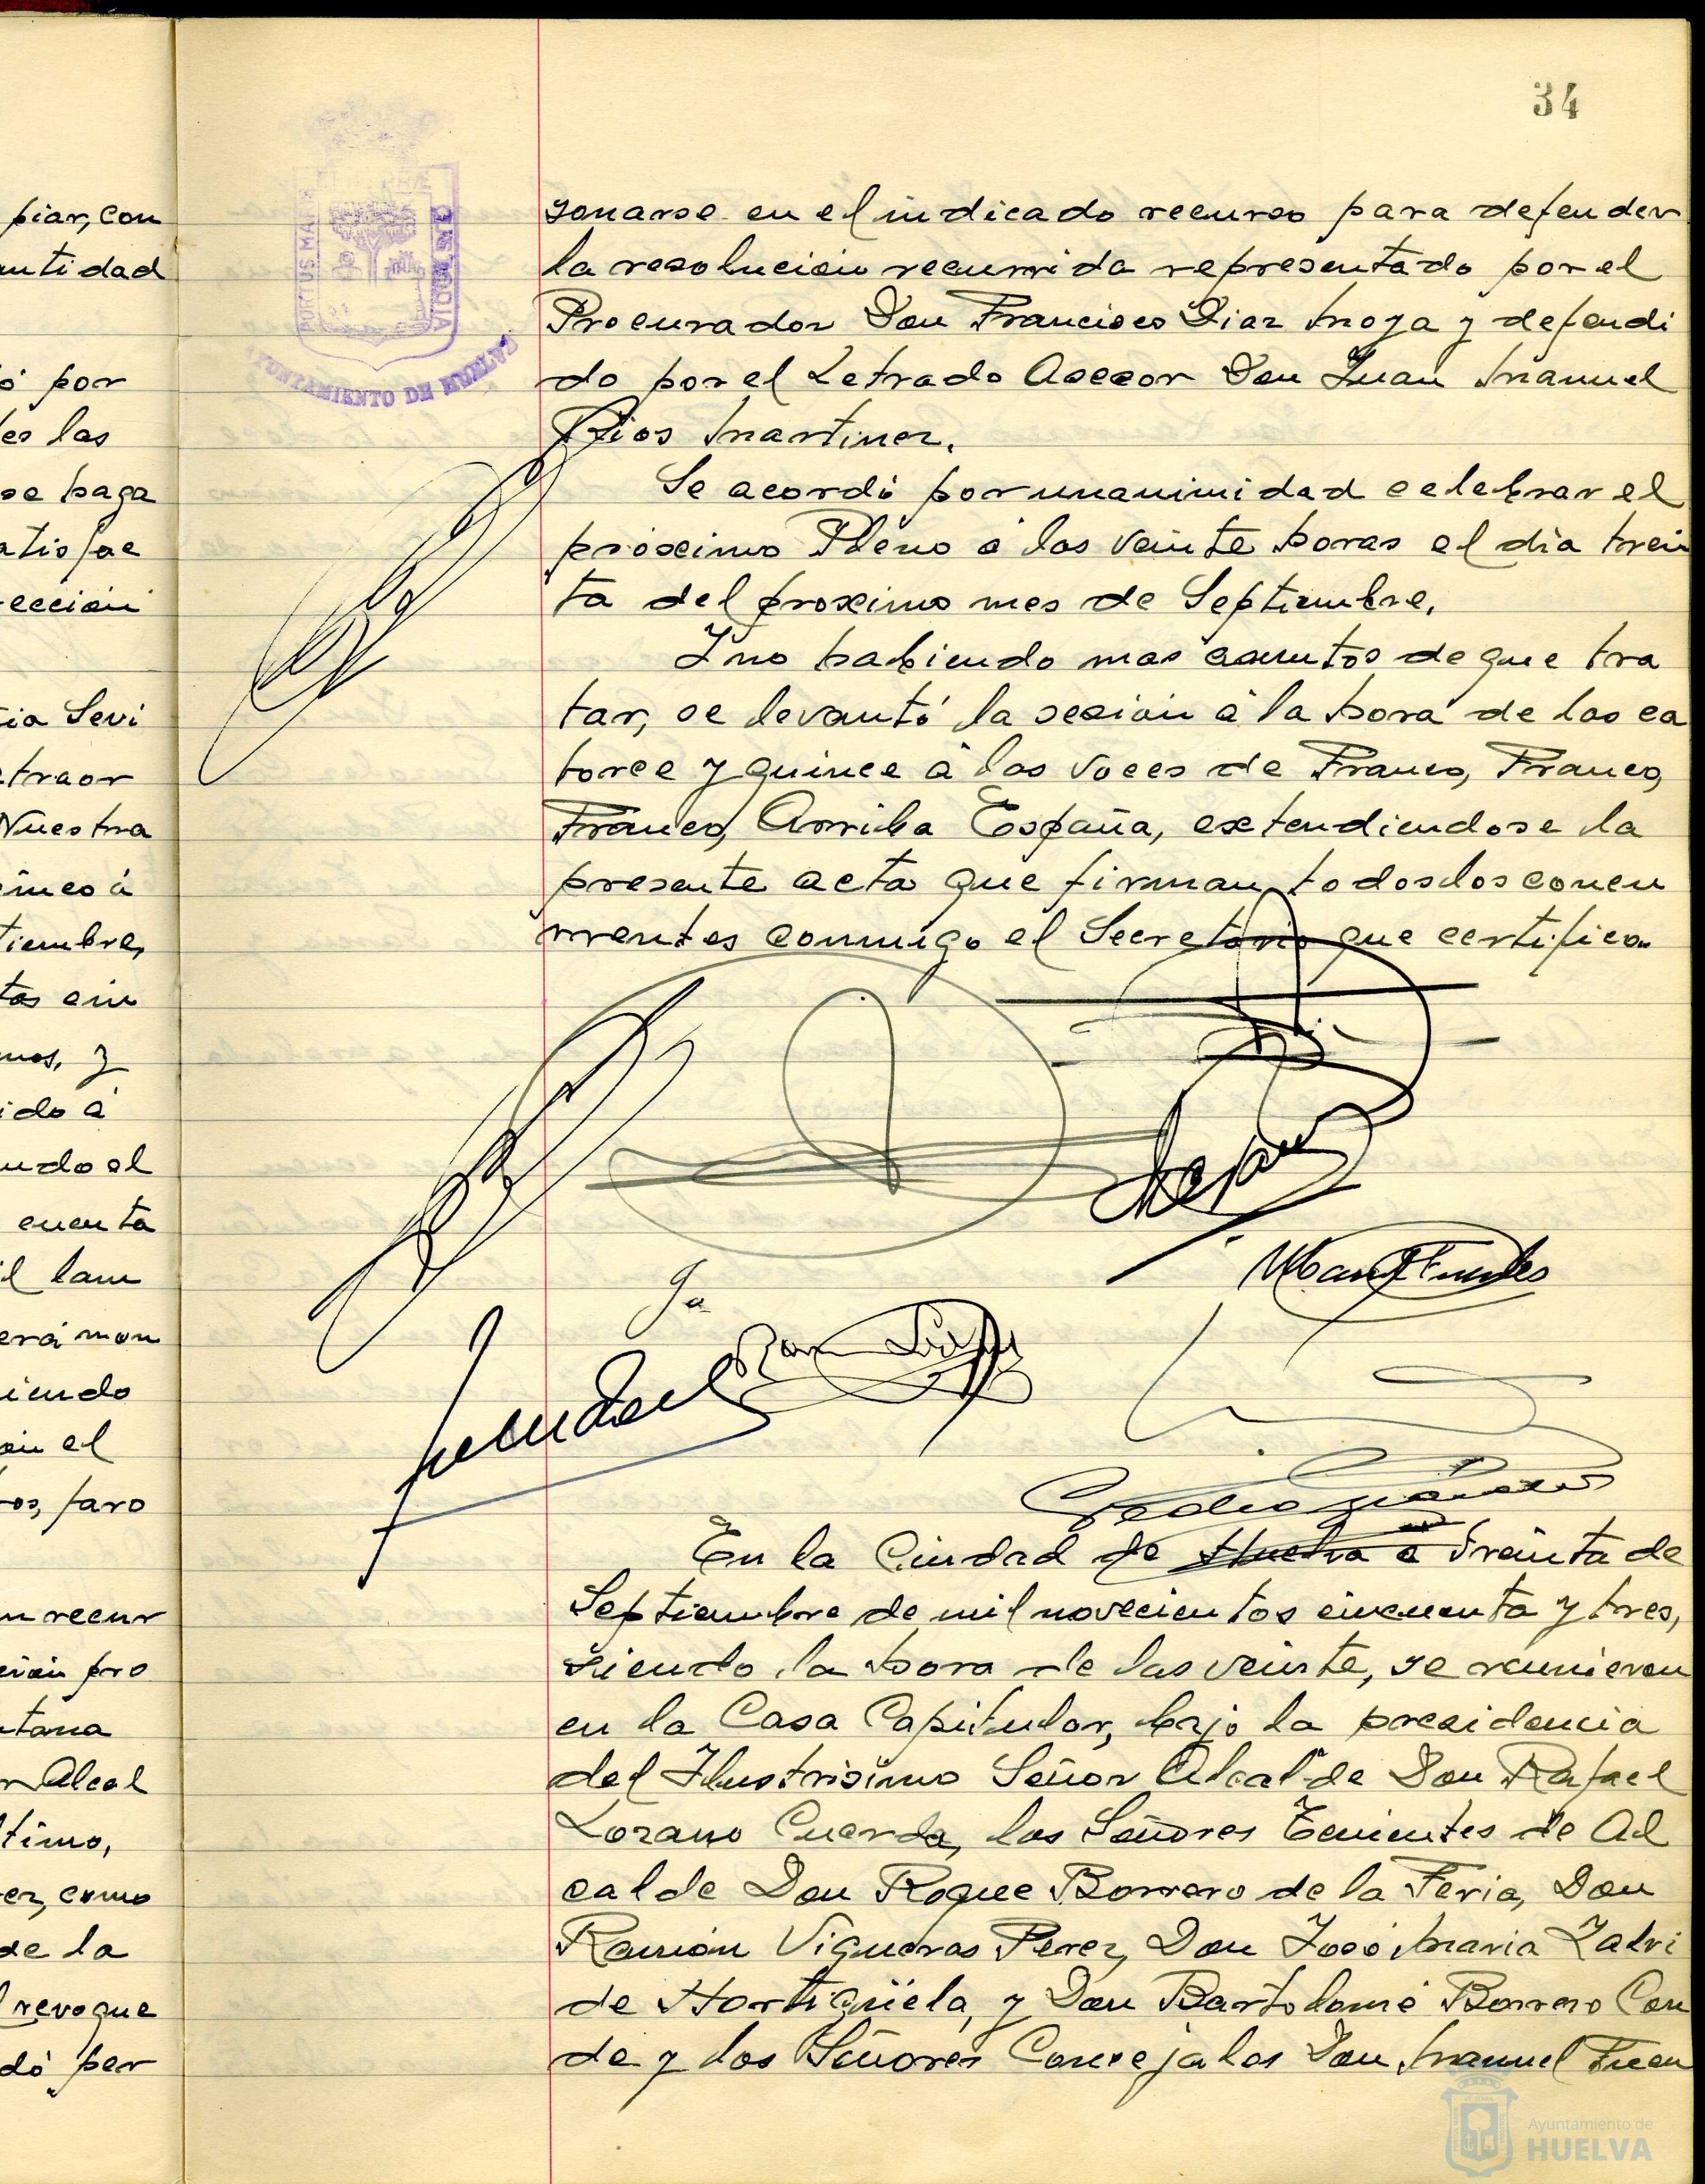 34
piar, con
antidad
ó por
es las
se haga
atisfac
ección
ia Sevi
traor
Nuestra
inco á
tiembre,
tos cin
mos, y
ido á
ndo el
cuenta
il lam
erá mon
iendo
en el
os, faro
n recur
ción pro
tana
r Alcal
timo,
ez, como
de la
revoque
dó per
PORTUS MARIS
CUSTODIA
AYUNTAMIENTO DE HUELVA
sonarse en el indicado recurso para defender
la resolución recurrida representado por el
Procurador Don Francisco Diaz Moya y defendi
do por el Letrado Asesor Don Juan Manuel
Rios Martinez.
Se acordó por unanimidad celebrar el
próximo Pleno á las veinte horas el día trein
ta del proximo mes de Septiembre.
Y no habiendo mas asuntos de que tra
tar, se levantó la sesión á la hora de las ca
torce y quince á las voces de Franco, Franco,
Franco, Arriba España, extendiendose la
presente acta que firman todos los concu
rrentes conmigo el Secretario que certifico.
En la Ciudad de Huelva a treinta de
Septiembre de mil novecientos cincuenta y tres,
siendo la hora de las veinte, se reunieron
en la Casa Capitular, bajo la presidencia
del Ilustrisimo Señor Alcalde Don Rafael
Lozano Cuerda, los Señores Tenientes de Al
calde Don Roque Borrero de la Feria, Don
Ramón Vigueras Perez, Don José Maria Zalvi
de Hortigüela, y Don Bartolomé Borrero Con
de y los Señores Concejales Don Manuel Fuen
Ayuntamiento de
HUELVA